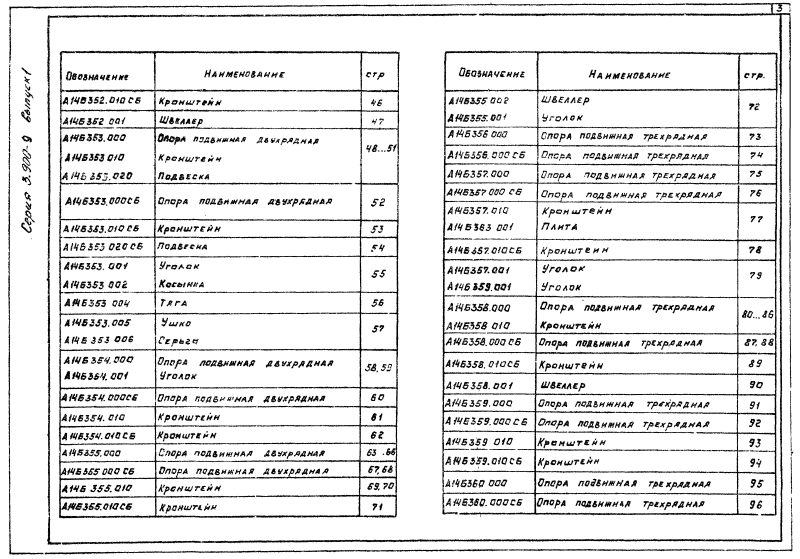 3
Серия 3.900-9 выпуск 1
Обозначение Наименование стр
А14Б352.010 СБ Кронштейн 46
А14Б352 001 Швеллер 47
А14Б353.000 Опора подвижная двухрядная 48...51
А14Б353 010 Кронштейн
А14Б 353.020 Подвеска
А14Б353.000СБ Опора подвижная двухрядная 52
А14Б353.010 СБ Кронштейн 53
А14Б353 020 СБ Подвеска 54
А14Б353.001 Уголок 55
А14Б353 002 Косынка
А14Б353 004 Тяга 56
А14Б353.005 Ушко 57
А14Б 353 006 Серьга
А14Б 354.000 Опора подвижная двухрядная 58,59
А14Б354.001 Уголок
А14Б354.000СБ Опора подвижная двухрядная 60
А14Б354.010 Кронштейн 61
А14Б354.010 СБ Кронштейн 62
А14Б355.000 Опора подвижная двухрядная 63..66
А14Б355 000 СБ Опора подвижная двухрядная 67,68
А14Б 355.010 Кронштейн 69,70
А14Б355.010 СБ Кронштейн 71
Обозначение Наименование стр.
А14Б355 002 Швеллер 72
А14Б355.001 Уголок
А14Б356 000 Опора подвижная трехрядная 73
А14Б356.000 СБ Опора подвижная трехрядная 74
А14Б357.000 Опора подвижная трехрядная 75
А14Б357 000 СБ Опора подвижная трехрядная 76
А14Б357.010 Кронштейн 77
А14Б363 001 Плита
А14Б357.010СБ Кронштейн 78
А14Б357.001 Уголок 79
А14Б 359.001 Уголок
А14Б358.000 Опора подвижная трехрядная 80...86
А14Б358 010 Кронштейн
А14Б358.000 СБ Опора подвижная трехрядная 87,88
А14Б358.010СБ Кронштейн 89
А14Б358.001 Швеллер 90
А14Б359.000 Опора подвижная трехрядная 91
А14Б359.000 СБ Опора подвижная трехрядная 92
А14Б359 010 Кронштейн 93
А14Б359.010 СБ Кронштейн 94
А14Б360 000 Опора подвижная трехрядная 95
А14Б360.000СБ Опора подвижная трехрядная 96